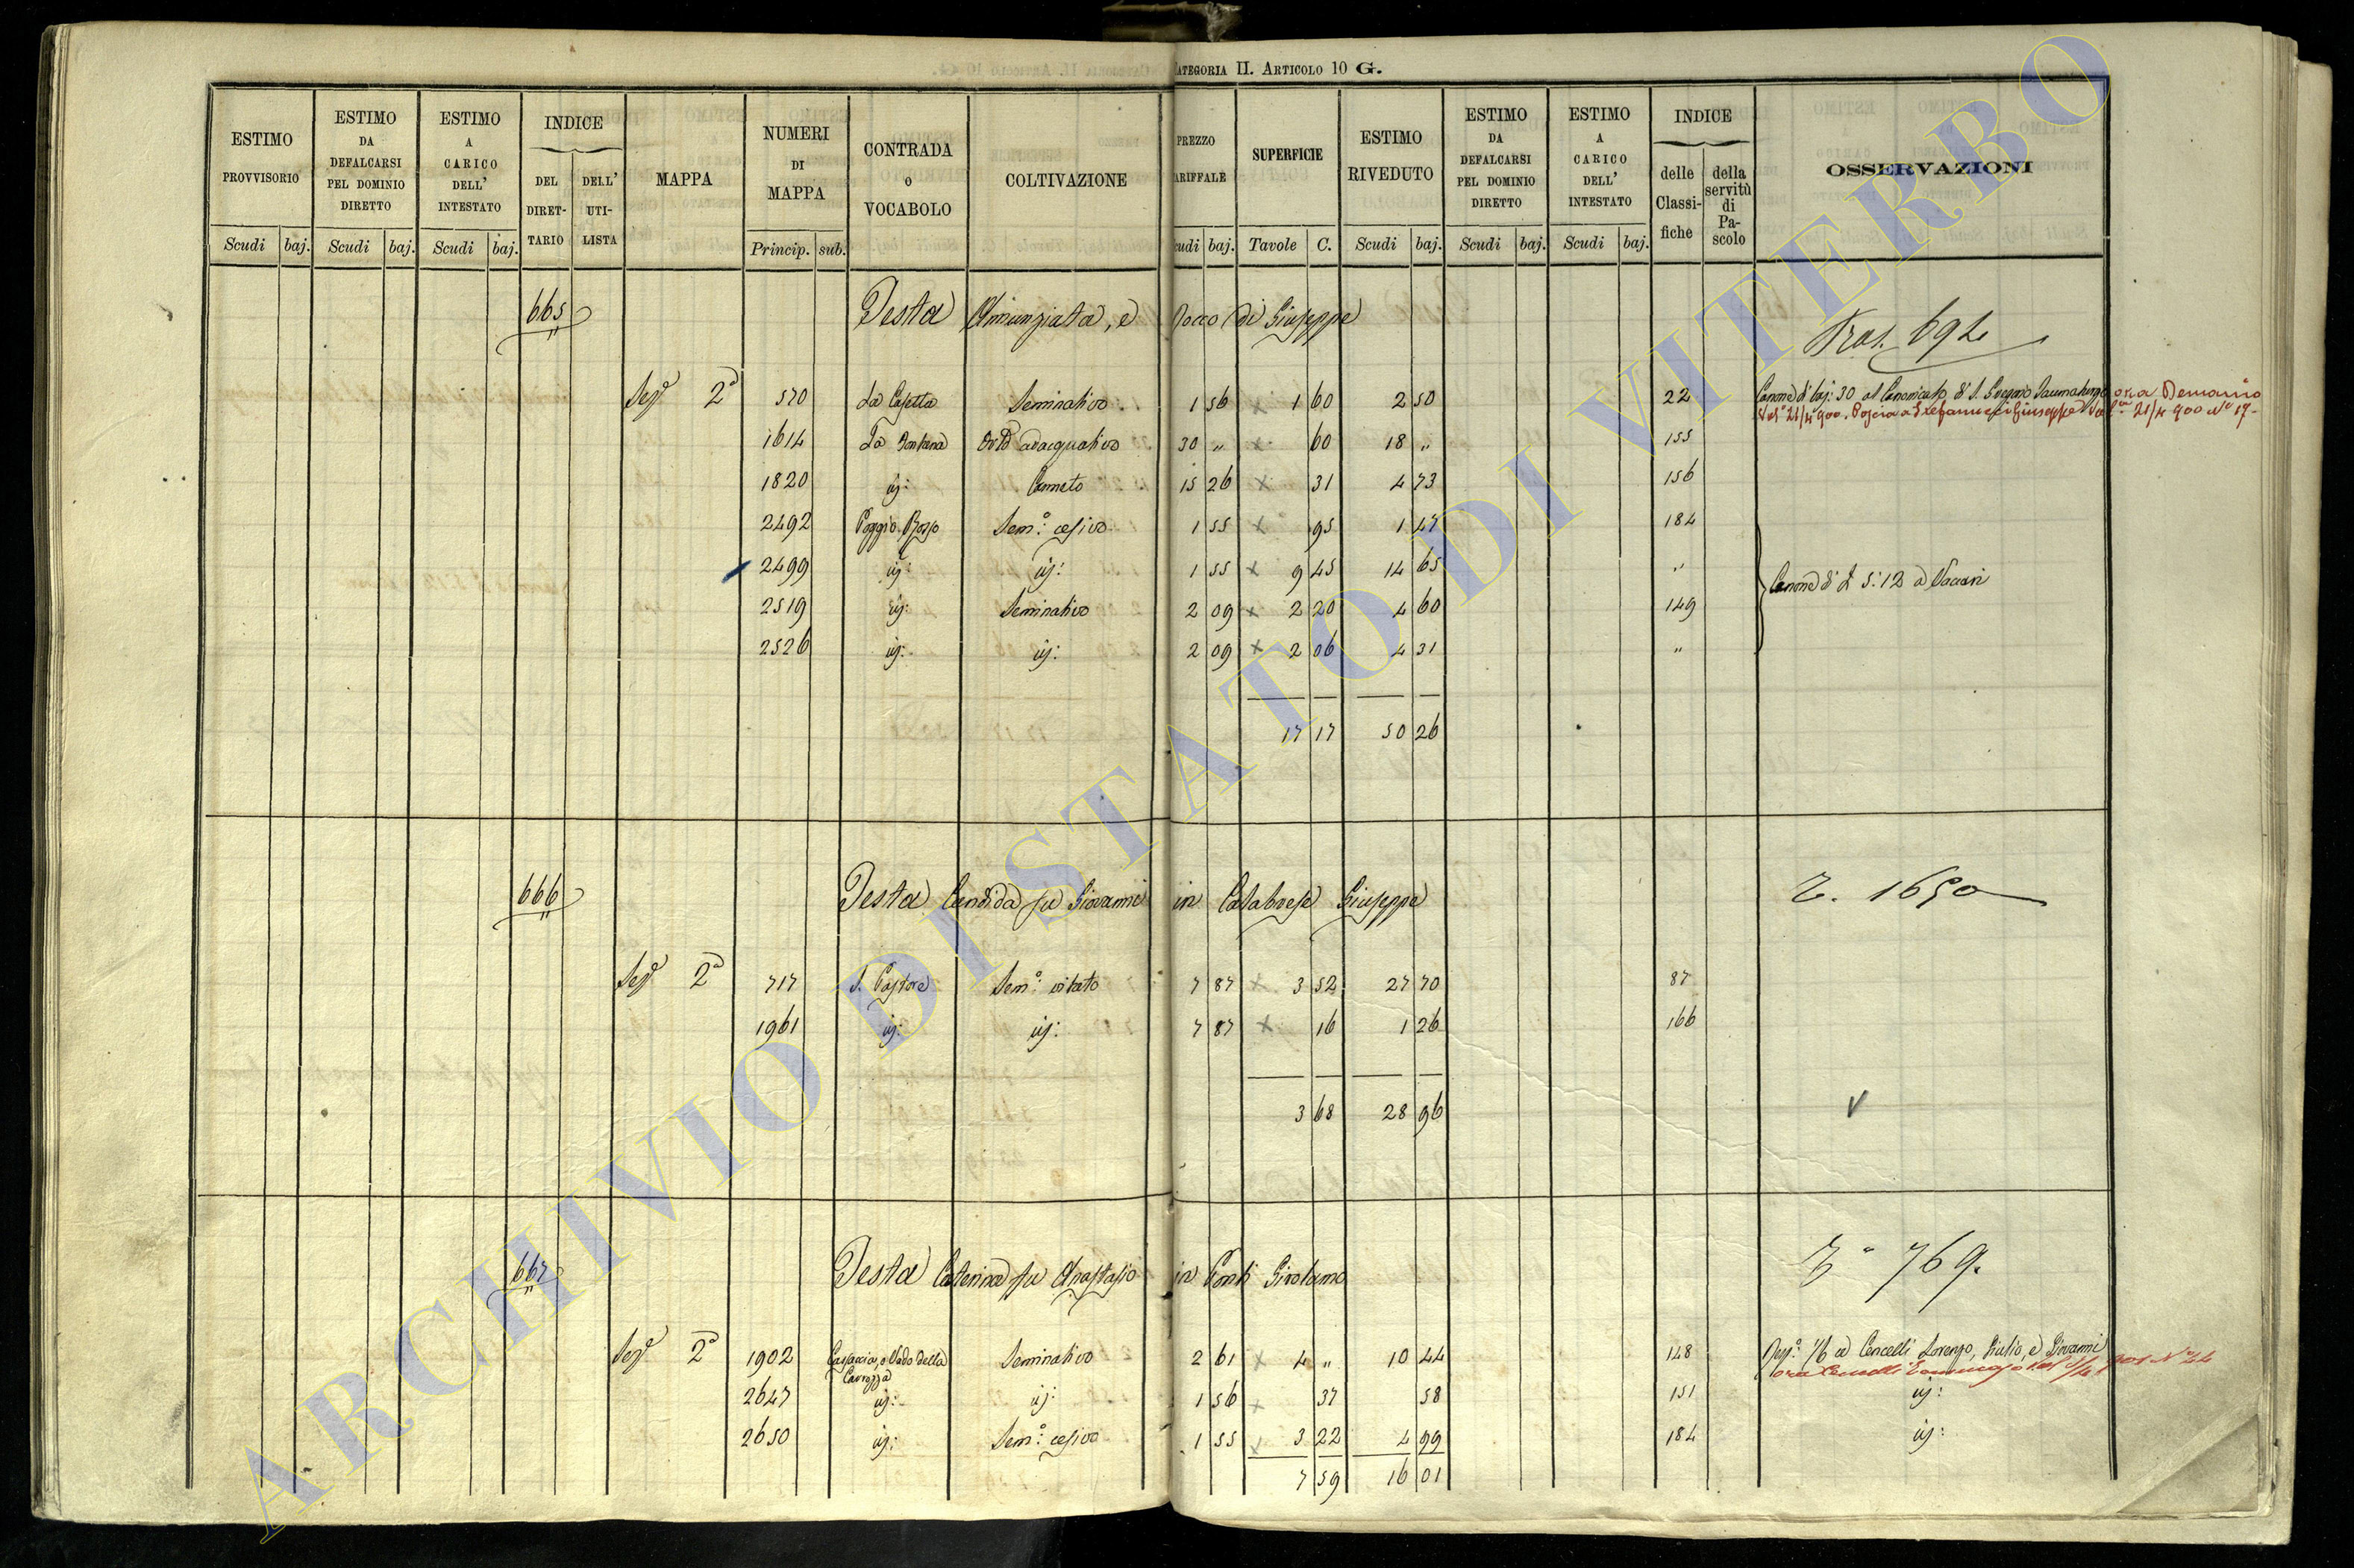 CATEGORIA II. ARTICOLO 10 G.
ESTIMO PROVVISORIO Scudi baj.
ESTIMO DA DEFALCARSI PEL DOMINIO DIRETTO Scudi baj.
ESTIMO A CARICO DELL' INTESTATO Scudi baj.
INDICE DEL DIRET-TARIO DELL' UTI-LISTA
MAPPA
NUMERI DI MAPPA Princip. sub.
CONTRADA O VOCABOLO
COLTIVAZIONE
PREZZO TARIFFALE Scudi baj.
SUPERFICIE Tavole C.
ESTIMO RIVEDUTO Scudi baj.
ESTIMO DA DEFALCARSI PEL DOMINIO DIRETTO Scudi baj.
ESTIMO A CARICO DELL' INTESTATO Scudi baj.
INDICE delle Classi-fiche della servitù di Pa-scolo
OSSERVAZIONI
665 Testa Annunziata, e Rocco di Giuseppe
Tras. 692
Sez.e 2a 570 La Casetta Seminativo 1 56 x 1 60 2 50 22 Canone di baj: 30 al Canonicato di S. Gregorio Taumaturgo ora Demanio
Vol.a 21/4 900. Poscia a Stefanucci Giuseppe Vol.a 21/4 900 No 17-
1614 La Fontana Orto adacquativo 30 " x 60 18 " 155
1820 id: Canneto 15 26 x 31 4 73 156
2492 Poggio Rosso Sem.o cesivo 1 55 x 95 1 47 184
2499 id: id: 1 55 x 9 45 14 65 "
Canone di £ 5:12 a Vaccari
2519 id: Seminativo 2 09 x 2 20 4 60 149
2526 id: id: 2 09 x 2 06 4 31 "
17 17 50 26
666 Testa Candida fu Giovanni in Calabrese Giuseppe
T. 1650
Sez.e 2a 717 S. Pastore Sem.o vitato 7 87 x 3 52 27 70 87
1961 id: id: 7 87 x 16 1 26 166
3 68 28 96
667 Testa Caterina fu Anastasio in Conti Girolamo
T.o 769.
Sez.e 2a 1902 Casaccia, o Vado della Carrozza Seminativo 2 61 x 4 " 10 44 148 1/6 a Cencelli Lorenzo, Giulio, e Giovanni
ora Cencelli No 44
2647 id: id: 1 56 x 37 58 151 id:
2650 id: Sem.o cesivo 1 55 x 3 22 4 99 184 id:
7 59 16 01
ARCHIVIO DI STATO DI VITERBO